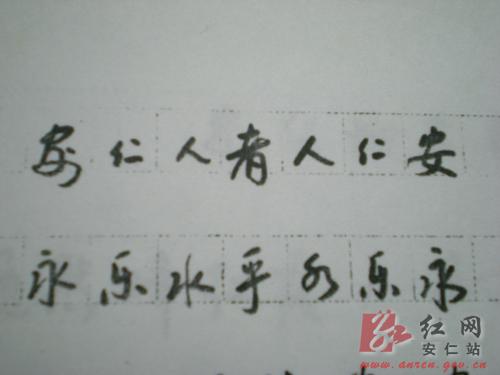 安仁人者人仁安
永乐水乎水乐永
红网
安仁站
www.anren.gov.cn